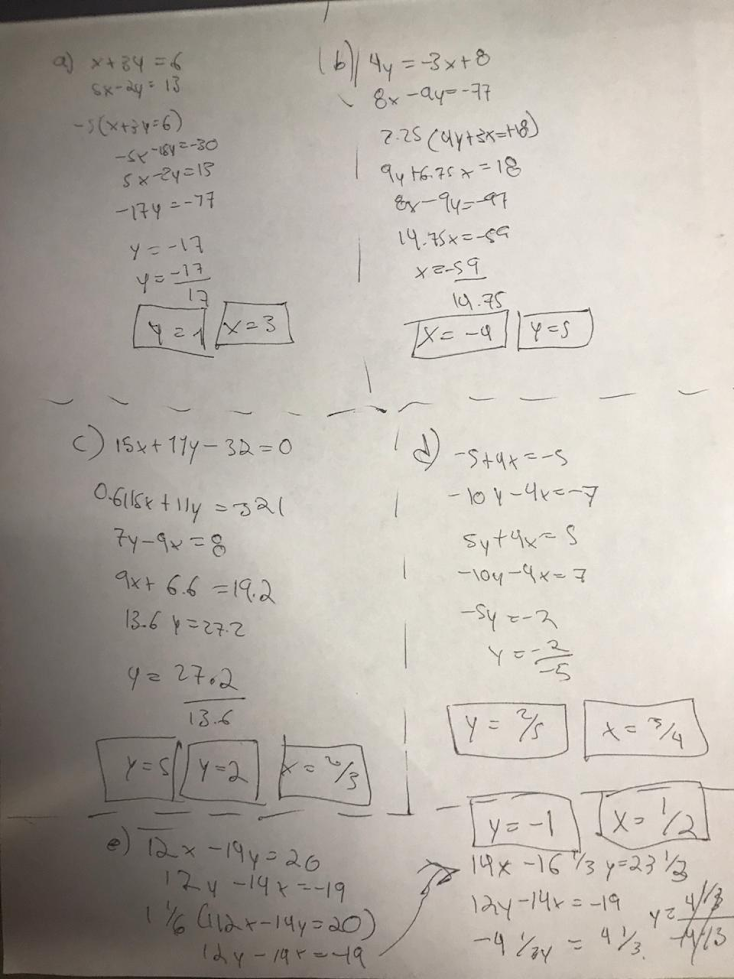 a) x+3y=6
5x-2y=13
-5(x+3y=6)
-5x-15y=-30
5x-2y=13
-17y=-17
y=-17
y=-17
17
y=1 x=3
(b) 4y=-3x+8
8x-9y=-77
2.25(4y+3x=+8)
9y+6.75x=18
8x-9y=-77
14.75x=-59
x=-59
14.75
x=-4 y=5
c) 15x+11y-32=0
0.6(15x+11y=32(
7y-9x=8
9x+6.6=19.2
13.6y=27.2
y=27.2
13.6
y=5 y=2 x=2/3
d) -5+4x=-5
-10y-4x=-7
5y+4x=5
-10y-4x=7
-5y=-2
y=-2
-5
y=2/5 x=3/4
e) 12x-14y=20
12y-14x=-19
1 1/6(12x-14y=20)
12y-14x=-19
y=-1 x=1/2
14x-16 1/3y=23 1/3
12y-14x=-19
-4 1/3y=4 1/3
y=4 1/3
-4 1/3